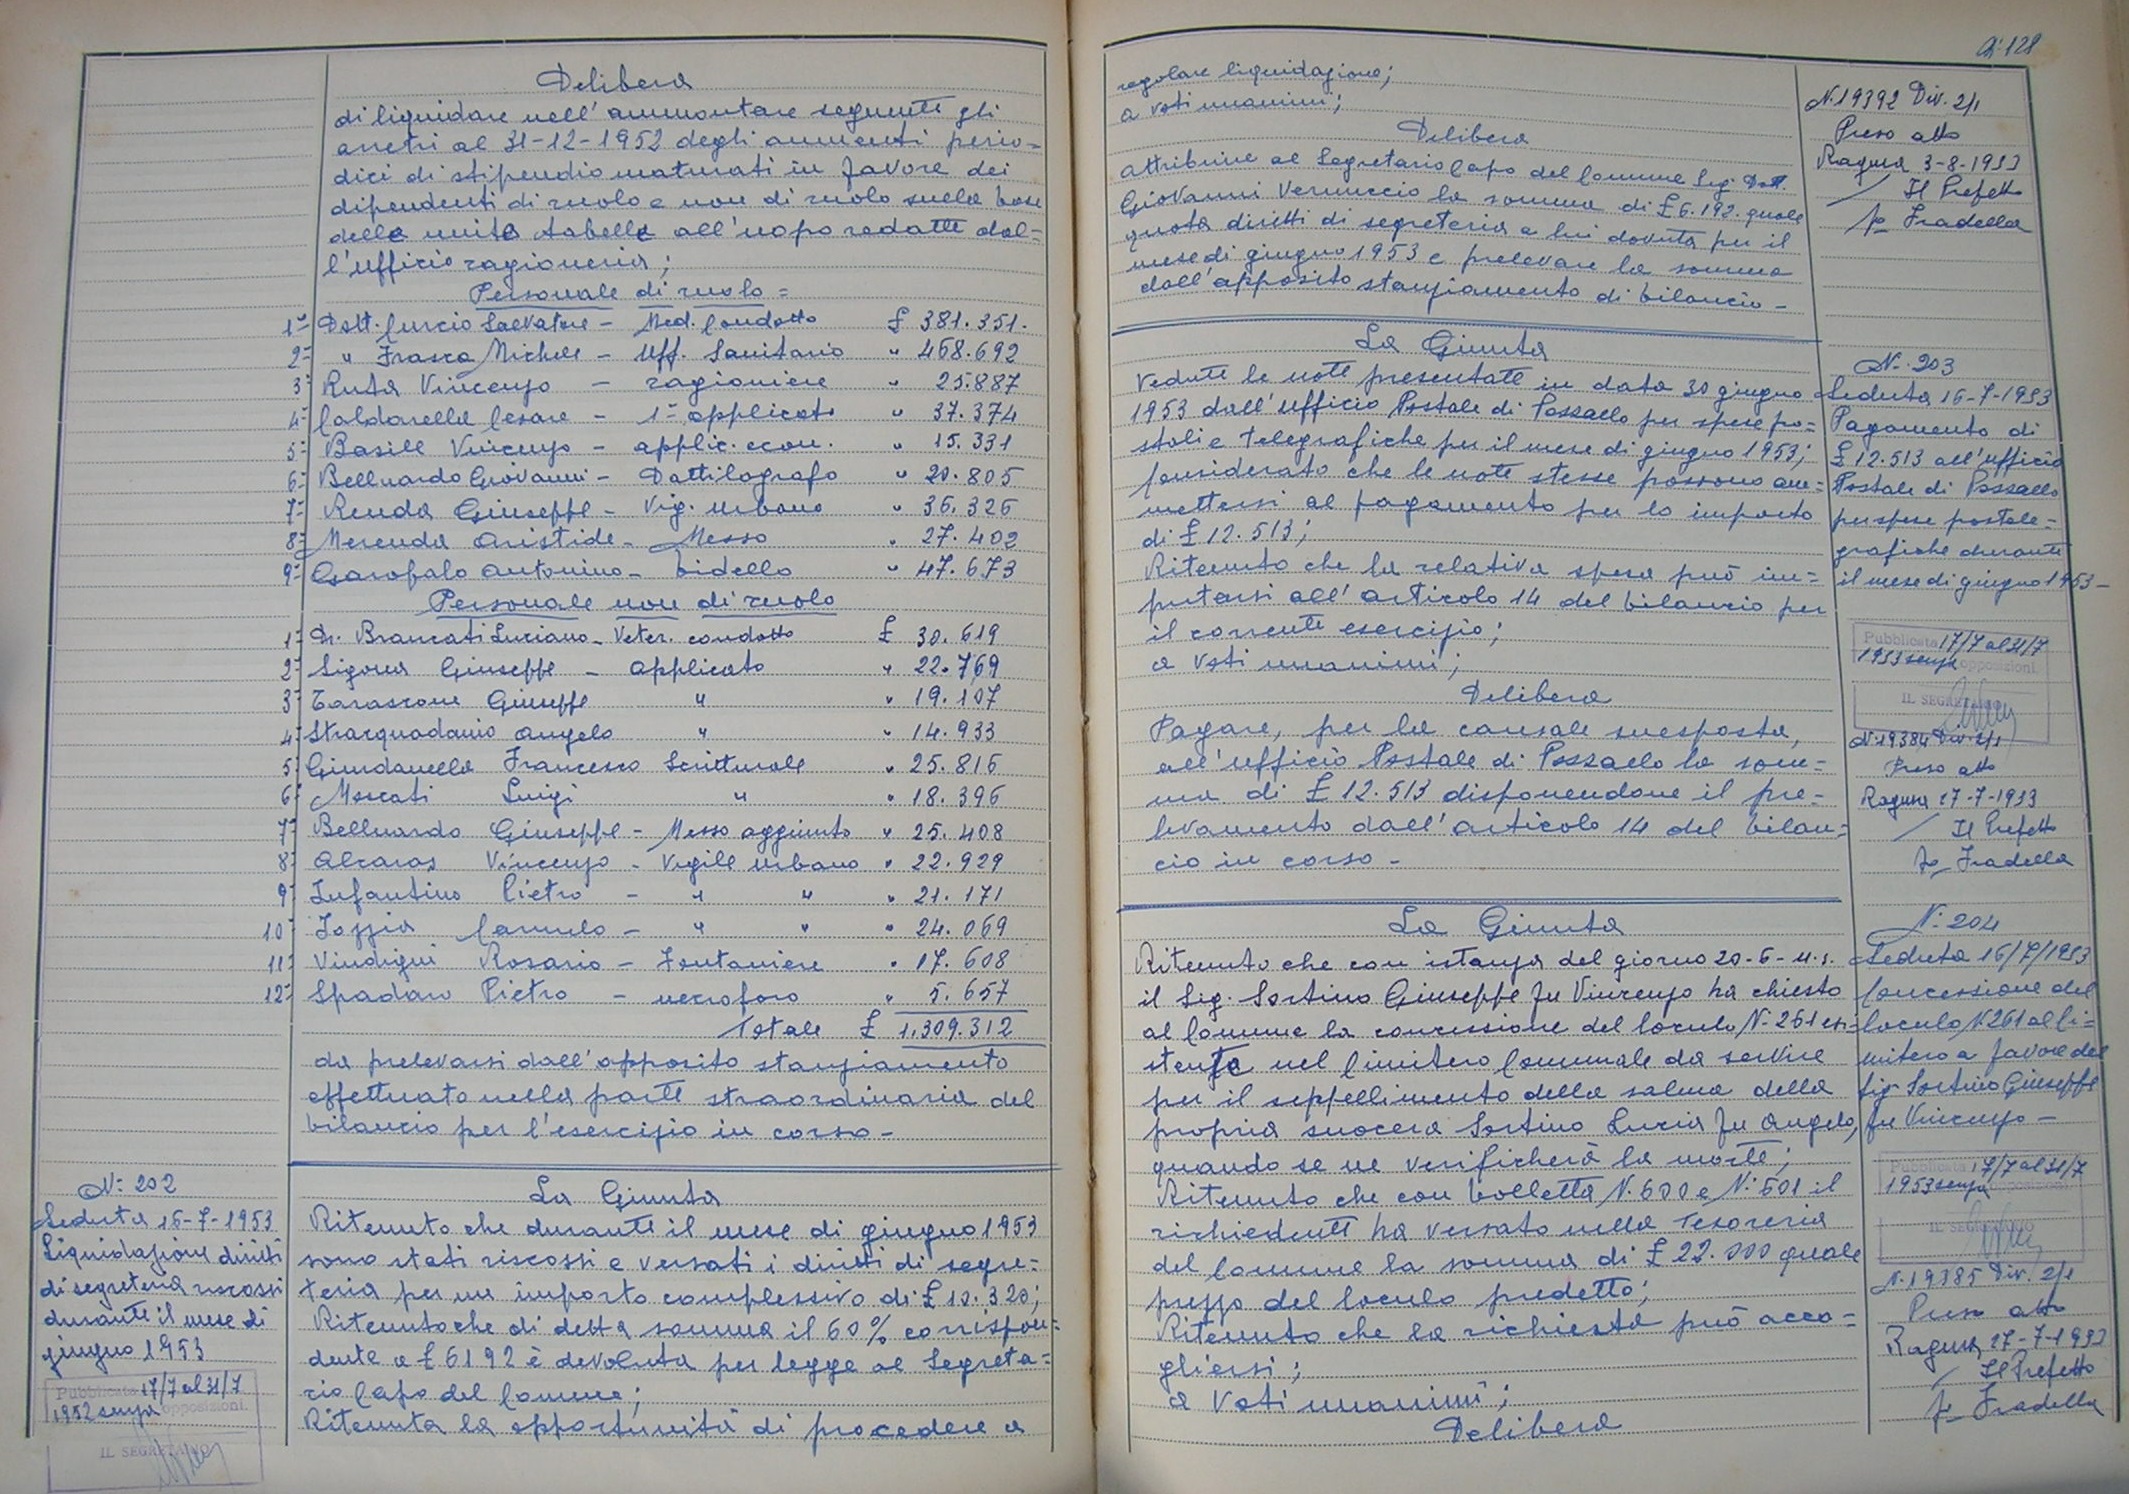 Delibera
di liquidare nell'ammontare seguente gli
arretri al 31-12-1952 degli aumenti perio=
dici di stipendio maturati in favore dei
dipendenti di ruolo e non di ruolo sulla base
delle unite tabelle all'uopo redatte dal=
l'ufficio ragioneria;
Personale di ruolo =
1° Dott. Curcio Salvatore - Med. Condotto £ 381.351.
2° " Frasca Michele - Uff. Sanitario " 468.692
3° Ruta Vincenzo - ragioniere " 25.887
4° Caldarella Cesare - 1° applicato " 37.374
5° Basile Vincenzo - applic. econ. " 15.331
6° Belluardo Giovanni - Dattilografo " 20.805
7° Renda Giuseppe - Vig. Urbano " 36.326
8° Merenda Aristide - Messo " 27.402
9° Garofalo Antonino - bidello " 47.673
Personale non di ruolo
1° Dr. Brancati Luciano - Veter. condotto £ 30.619
2° Sigona Giuseppe - Applicato " 22.769
3° Tarascone Giuseppe " " 19.107
4° Stracquadanio Angelo " " 14.933
5° Giurdanella Francesco Scritturale " 25.816
6° Moscati Luigi " " 18.396
7° Belluardo Giuseppe - Messo aggiunto " 25.408
8° Alcaras Vincenzo - Vigile Urbano " 22.929
9° Infantino Pietro - " " " 21.171
10° Iozzia Carmelo - " " " 24.069
11° Vindigni Rosario - Fontaniere " 17.608
12° Spadaro Pietro - necroforo " 5.657
Totale £ 1.309.312
da prelevarsi dall'apposito stanziamento
effettuato nella parte straordinaria del
bilancio per l'esercizio in corso -
N° 202
Seduta 16-7-1953
Liquidazione diritti
di segreteria riscossi
durante il mese di
giugno 1953
Pubblicata 17/7 al 31/7
1952 senza opposizioni.
IL SEGRETARIO
La Giunta
Ritenuto che durante il mese di giugno 1953
sono stati riscossi e versati i diritti di segre=
teria per un importo complessivo di £ 10.320;
Ritenuto che di detta somma il 60% corrispon=
dente a £ 6192 è devoluta per legge al Segreta=
rio Capo del Comune;
Ritenuta la opportunità di procedere a
128
regolare liquidazione;
a voti unanimi;
Delibera
attribuire al Segretario Capo del Comune Sig. Dott.
Giovanni Vernuccio la somma di £ 6.192. quale
quota diritti di segreteria a lui dovuta per il
mese di giugno 1953 e prelevare la somma
dall'apposito stanziamento di bilancio -
N. 19392 Div. 2/1
Preso atto
Ragusa 3-8-1953
Il Prefetto
fto Fradella
La Giunta
Vedute le note presentate in data 30 giugno
1953 dall'Ufficio Postale di Pozzallo per spese po=
stali e telegrafiche per il mese di giugno 1953;
Considerato che le note stesse possono am=
mettersi al pagamento per lo importo
di £ 12.513;
Ritenuto che la relativa spesa può im=
putarsi all'articolo 14 del bilancio per
il corrente esercizio;
a voti unanimi;
Delibera
Pagare, per la causale suesposta,
all'Ufficio Postale di Pozzallo la som=
ma di £ 12.513 disponendone il pre=
levamento dall'articolo 14 del bilan=
cio in corso -
N. 203
Seduta 16-7-1953
Pagamento di
£ 12.513 all'ufficio
Postale di Pozzallo
per spese postele=
grafiche durante
il mese di giugno 1953 -
Pubblicata 17/7 al 31/7
1953 senza opposizioni.
IL SEGRETARIO
N. 19384 Div. 2/1
Preso atto
Ragusa 27-7-1953
Il Prefetto
fto Fradella
La Giunta
Ritenuto che con istanza del giorno 20-6- u.s.
il Sig. Sortino Giuseppe fu Vincenzo ha chiesto
al Comune la concessione del loculo N. 261 esi=
stente nel Cimitero Comunale da servire
per il seppellimento della salma della
propria suocera Sortino Lucia fu Angelo,
quando se ne verificherà la morte;
Ritenuto che con bolletta N. 600 e N. 601 il
richiedente ha versato nella Tesoreria
del Comune la somma di £ 22.000 quale
prezzo del loculo predetto;
Ritenuto che la richiesta può acco=
gliersi;
a voti unanimi;
Delibera
N. 204
Seduta 16/7/1953
Concessione del
loculo N. 261 al Ci=
mitero a favore del
Sig. Sortino Giuseppe
fu Vincenzo -
Pubblicata 17/7 al 31/7
1953 senza opposizioni
IL SEGRETARIO
N. 19385 Div. 2/1
Preso atto
Ragusa 27-7-1953
Il Prefetto
fto Fradella